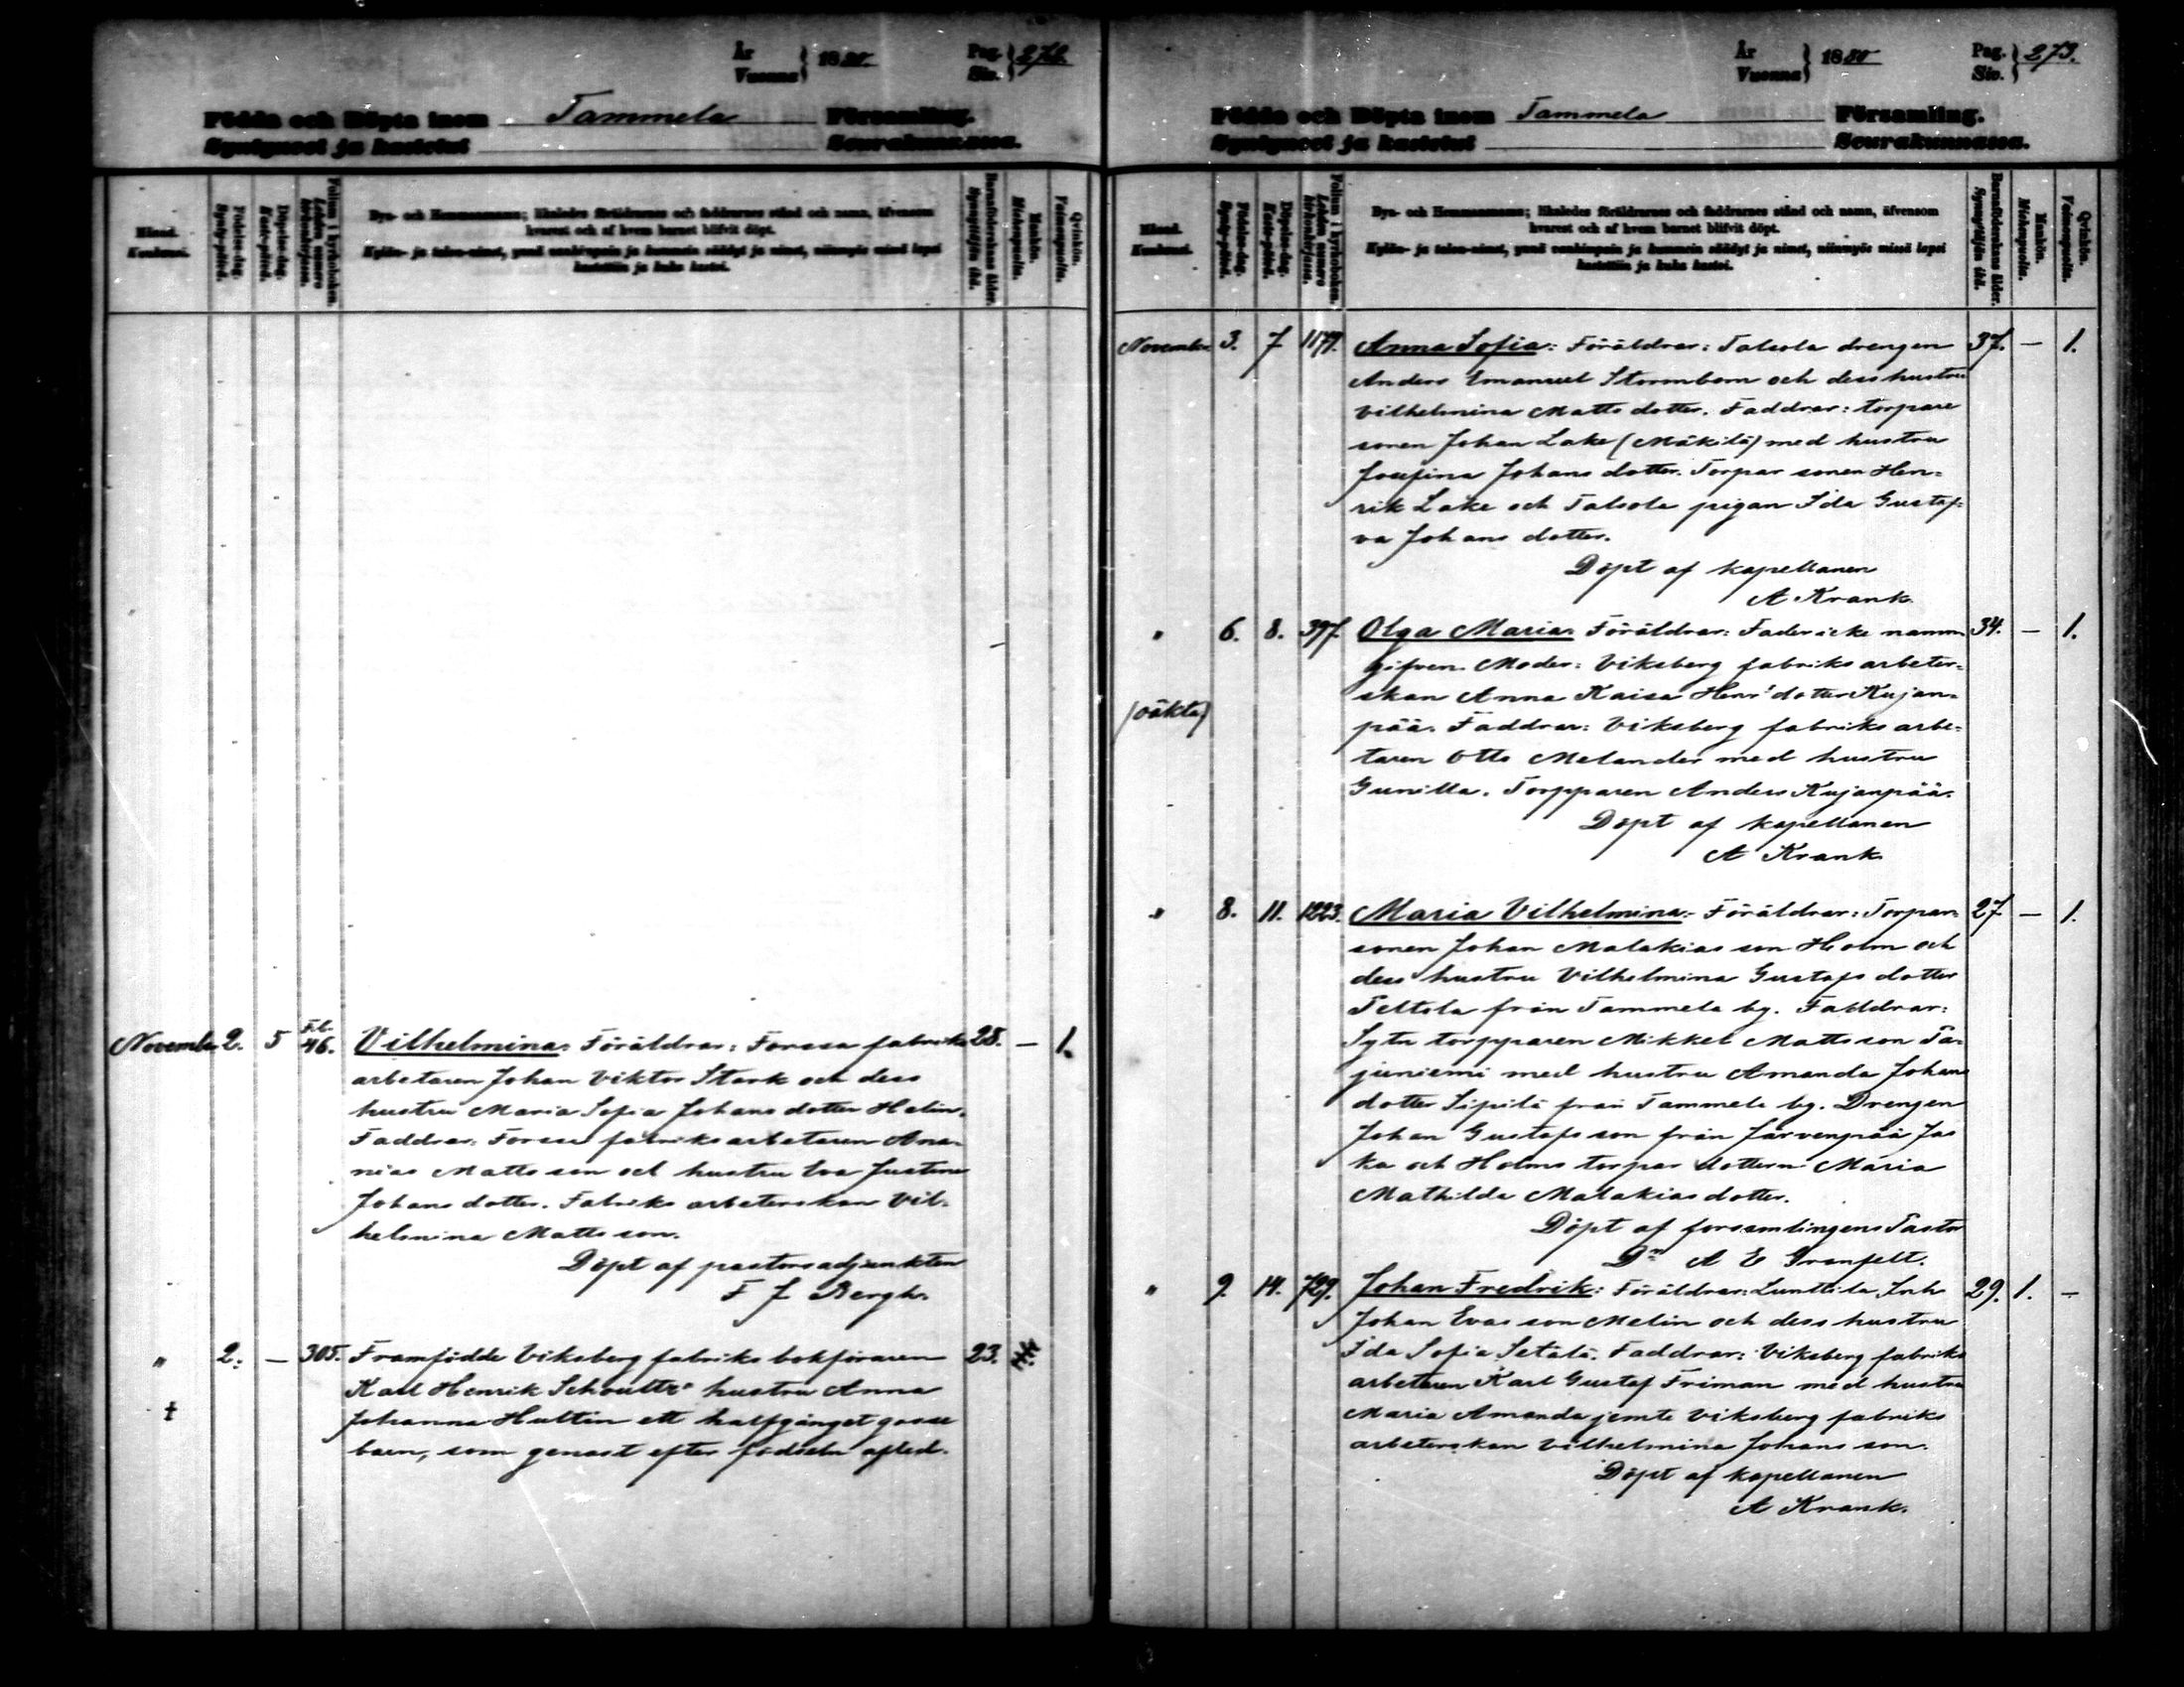 År
Vuonna } 1880. Pag. Siv. } 272.
Födda och Döpta inom Tammela Församling.
Syntyneet ja kastetut Seurakunnassa.
Månad. Kuukausi.
Födelse-dag. Synty-päivä.
Döpelse-dag. Kaste-päivä.
Folium i kyrkoboken. Lehden numero kirkonkirjassa.
Bya- och Hemmansnamn; likaledes föräldrarnes och faddrarnes stånd och namn, äfvensom
hvarest och af hvem barnet blifvit döpt.
Kylän- ja talon-nimet, ynnä vanhimpain ja kummein säädyt ja nimet, niinmyös missä lapsi
kastettiin ja kuka kastoi.
Barnaföderskans ålder. Synnyttäjän ikä.
Mankön. Miehenpuolta.
Qvinkön. Vaimonpuolta.
November 2. 5 F.b. 46. Vilhelmina: Föräldrar: Forssa fabriks 28. — 1.
arbetaren Johan Viktor Stark och dess
hustru Maria Sofia Johans dotter Helin.
Faddrar: Forssa fabriks arbetaren Ana-
nias Matts son och hustru Eva Justina
Johans dotter. Fabriks arbeterskan Vil-
helmina Matts son.
Döpt af pastorsadjunkten
F J Bergh.
" 2. — 305. Framfödde Viksberg fabriks bokföraren 23.
Karl Henrik Schoultz' hustru Anna
† Johanna Hultin ett halfgånget gosse
barn, som genast efter födseln afled.
År
Vuonna } 1880 Pag. Siv. } 273.
Födda och Döpta inom Tammela Församling.
Syntyneet ja kastetut Seurakunnassa.
Månad. Kuukausi.
Födelse-dag. Synty-päivä.
Döpelse-dag. Kaste-päivä.
Folium i kyrkoboken. Lehden numero kirkonkirjassa.
Bya- och Hemmansnamn; likaledes föräldrarnes och faddrarnes stånd och namn, äfvensom
hvarest och af hvem barnet blifvit döpt.
Kylän- ja talon-nimet, ynnä vanhimpain ja kummein säädyt ja nimet, niinmyös missä lapsi
kastettiin ja kuka kastoi.
Barnaföderskans ålder. Synnyttäjän ikä.
Mankön. Miehenpuolta.
Qvinkön. Vaimonpuolta.
November 3. 7 1177. Anna Sofia: Föräldrar: Talsola drengen 37. — 1.
Anders Emanuel Stormbom och dess hustru
Vilhelmina Matts dotter. Faddrar: torpare
sonen Johan Lake (Mäkilä) med hustru
Josefina Johans dotter. Torpar sonen Hen-
rik Lake och Talsola pigan Ida Gustaf-
va Johans dotter.
Döpt af kapellanen
A Krank
" 6. 8. 397. Olga Maria: Föräldrar: Fader icke namn 34. — 1.
gifven. Moder: Viksberg fabriks arbeter-
skan Anna Kaisa Henr: dotter Kujan-
(oäkta) pää. Faddrar: Viksberg fabriks arbe-
taren Otto Melander med hustru
Gunilla. Torpparen Anders Kujanpää.
Döpt af kapellanen
A Krank
" 8. 11. 1223. Maria Vilhelmina: Föräldrar: Torpar- 27 — 1.
sonen Johan Malakias son Holm och
dess hustru Vilhelmina Gustafs dotter
Teltola från Tammela by. Faddrar:
Sytn torpparen Mikkel Matts son Ta-
juniemi med hustru Amanda Johans
dotter Sipilä från Tammela by. Drengen
Johan Gustafs son från Järvenpää Jas
ka och Holms torpar dottern Maria
Mathilda Malakias dotter.
Döpt af församlingens Pastor
Dr A E Granfelt.
" 9. 14. 729. Johan Fredrik: Föräldrar: Lunttila, Inh 29. 1. —
Johan Evas son Melin och dess hustru
Ida Sofia Setälä. Faddrar: Viksberg fabriks
arbetaren Karl Gustaf Friman med hustru
Maria Amanda jemte Viksberg fabriks
arbeterskan Vilhelmina Johans son.
Döpt af kapellanen
A Krank.